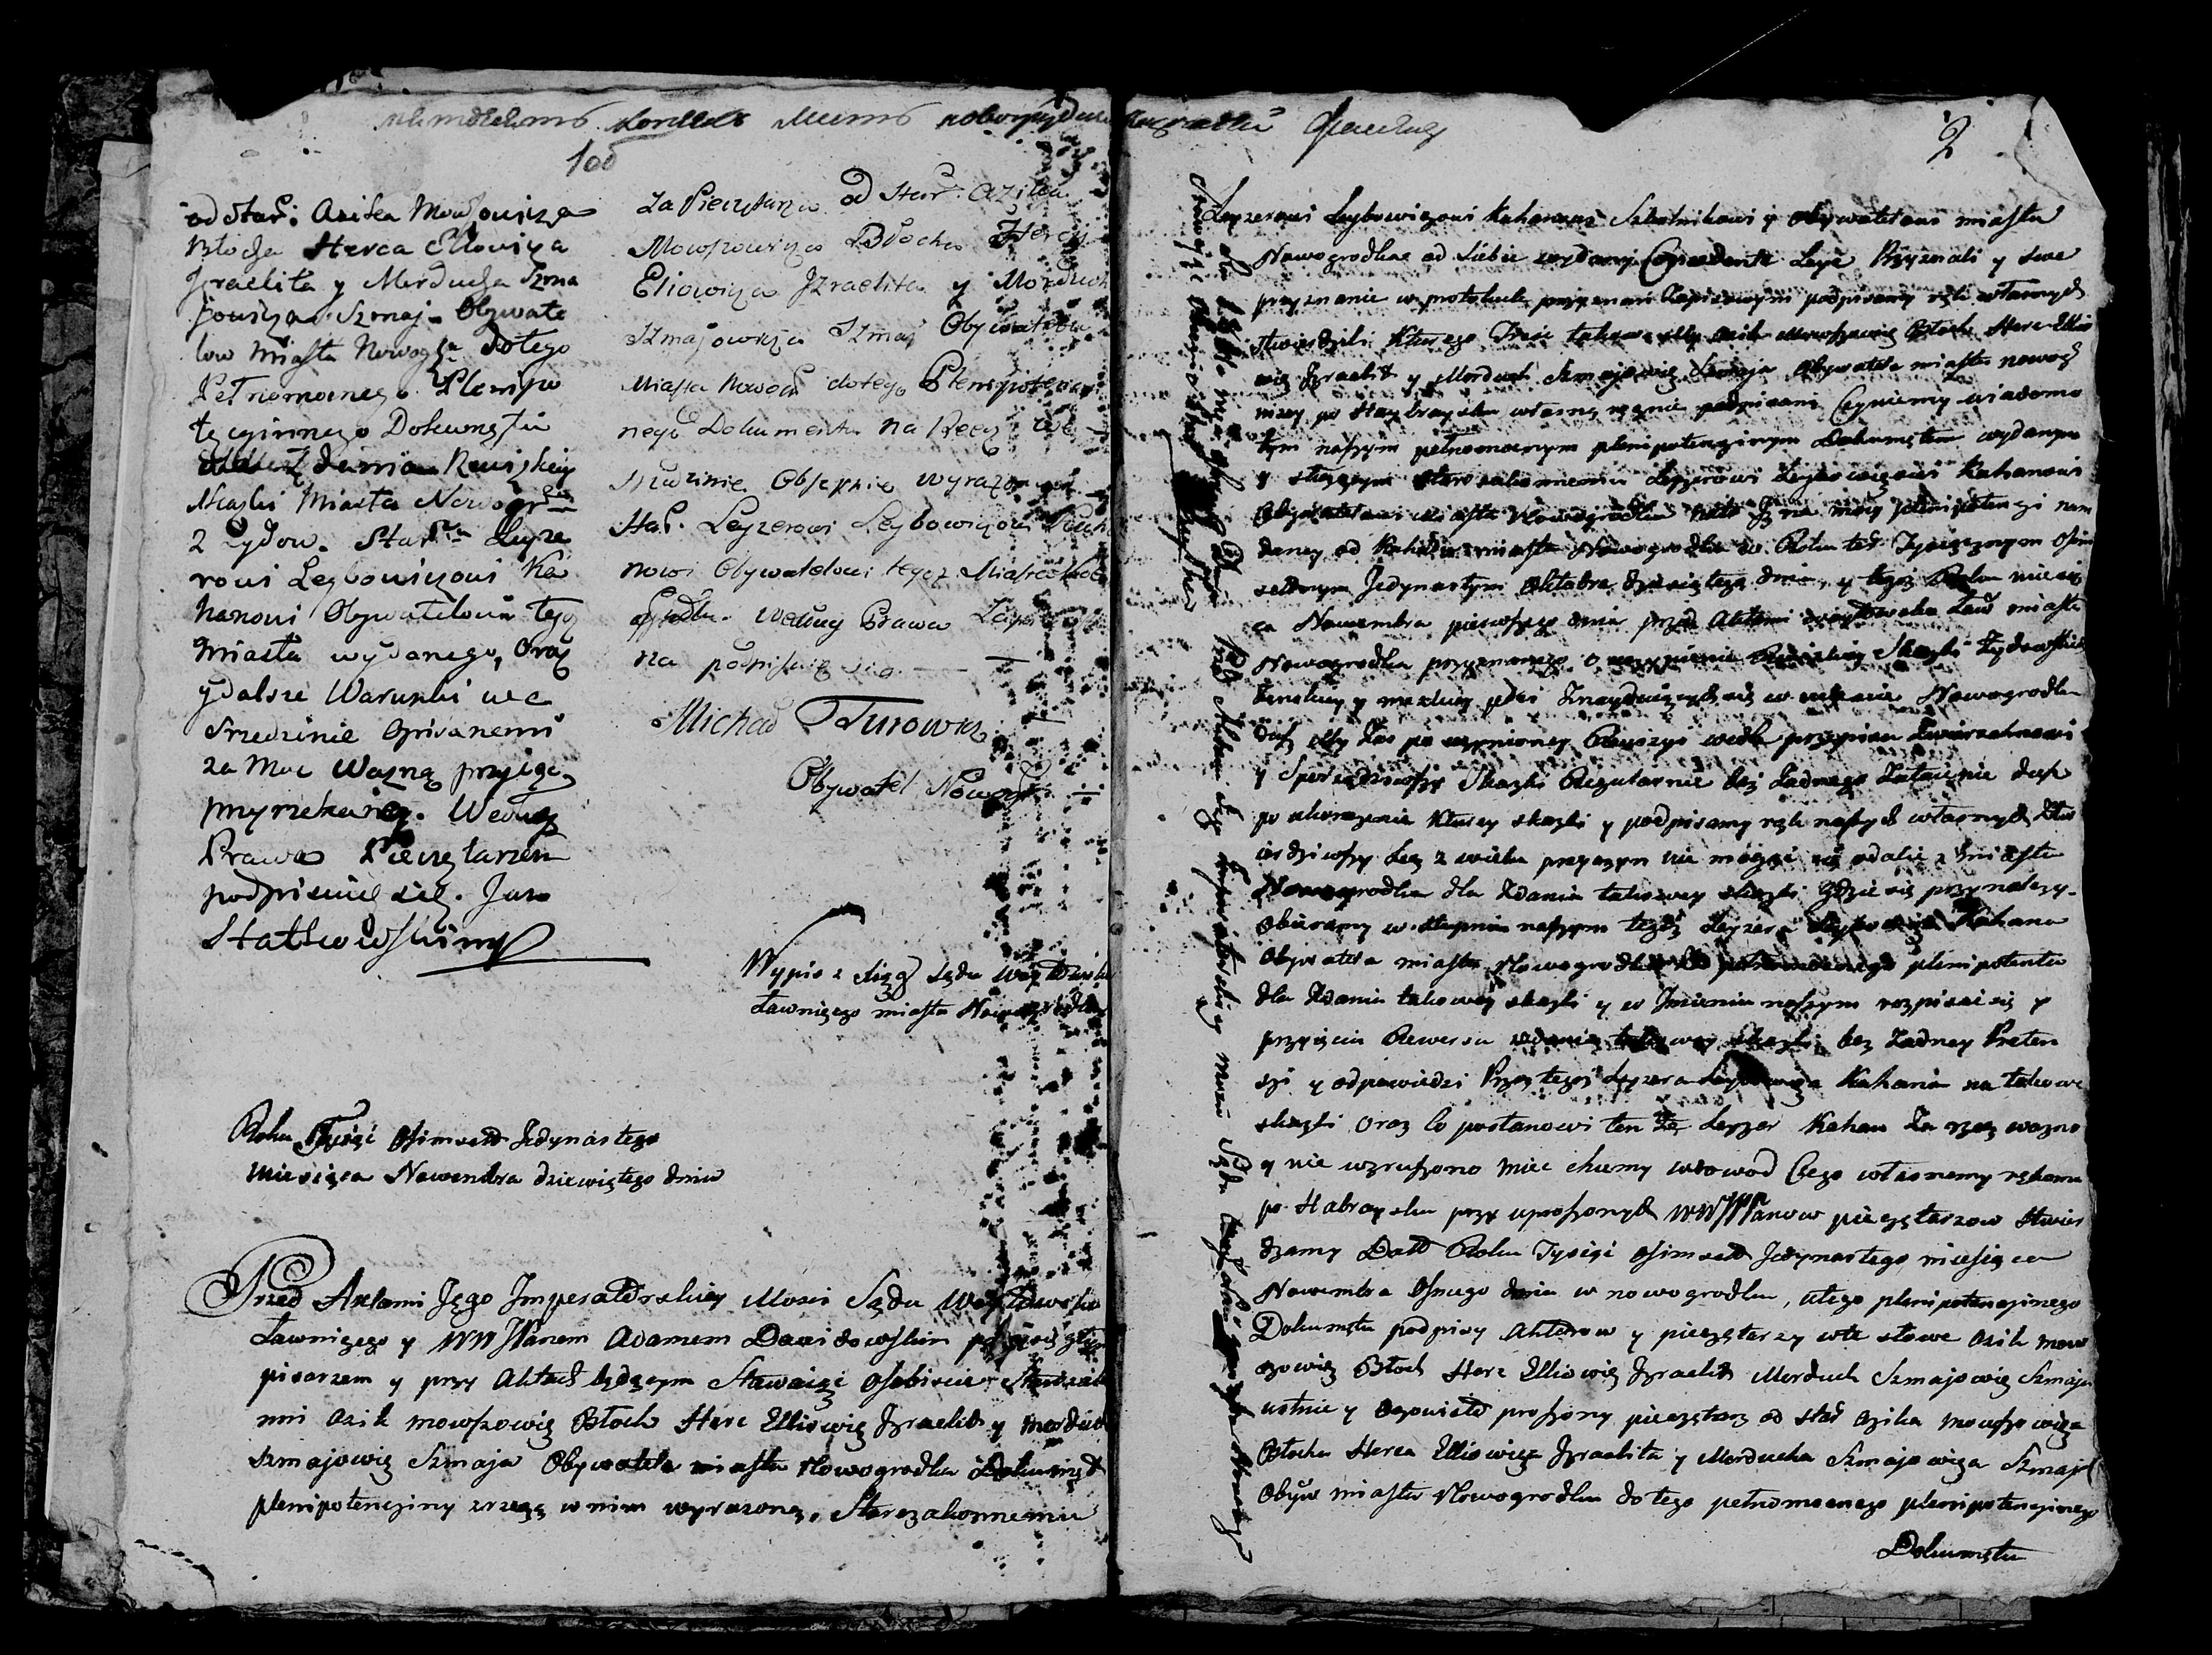 100
od Star: Azika Mowszowicza
Błocha Herca Elowicza
Izraelita y Morducha Szma
jowicza Szmaj- Obywate
low Miasta Nowogr: do tego
Pełnomocnego Plenipo
tęcyinnego Dokumętu
Rewizkiey
Skaski Miasta Nowogr
z Żydow. Star Leyze
rowi Leybowiczowi Ka
hanowi Obywatelowi tego
Miasta wydanego, Oraz
y dalsze Warunki we
Srzedzinie Opisanemi
za Moc Ważną przyiąc
przyrzekaiącey. Według
Prawa Pieczętarzem
podpisuię się. Jan
za Pieczętarza od Star: Azika
Mowszowicza Błocha Herca
Eliowicza Izraelita y Morducha
Szmajowicza Szmaj Obywatelow
Miasta Nowogr: do tego Plenipotency
nego Dokumentu na Rzecz we
Srzedzinie Obszernie wyrażoną
Star. Leyzerowi Leybowiczowi Kaha
nowi Obywatelowi tegoż Miasta Nowo
grodka. według Prawa
na podpisuię się.
Michał Turowicz
Obywatel Nowogr
Wypis z Xiąg Sądu Woytowsko
Ławniczego miasta Nowogrodka
Roku Tysiąc Osimset Jedynastego
Miesiąca Nowembra dziewiątego dnia
Przed Aktami Jego Imperatorskiey Mosci Sądu Woytowsko
Ławniczego y WW JPanem Adamem Dawidowskim
pisarzem y przy Aktach będącym Stawaiąc Osobiscie Starozako
nni Azik Mowszowicz Błoch Herc Elliowicz Izraelit y Morduch
Szmajowicz Szmaja Obywatele miasta Nowogrodka Dokumęt
plenipotencyiny z rzeczą w nim wyrażoną, Starozakonnemu
2
Leyzerowi Leybowiczowi Kahanowi Szkolnikowi y Obywatelowi miasta
Nowogrodka od Siebie wydany Przyznali y swe
przyznanie w protokule przyznań Zapisowym podpisamy rąk własnych
stwierdzili Kturego Treść takowa My Azik Mowszowicz Błoch Herc Ellio
wicz Izraelit y Morduch Szmajowicz Szmaja Obywatele miasta Nowog
niżey po Haybraysku własną ręcznie podpisani Czyniemy wiadomo
tym naszym pełnomocnym plenipotencyinym Dokumętem wydanym
y służącym Starozakonnemu Leyzerowi Leybowiczowi Kahanowi
Obywatelowi Miasta Nowogrodka na mocy plenipotencyi nam
daney od Kahału miasta Nowogrodka w Roku ter Tysiącznym Osim
setnym Jedynastym Oktobra dziesiątego dnia, y tegoż Roku miesią
ca Nowembra pierwszego dnia przed Aktami Woytowsko Ław miasta
Nowogrodka przyznanego o uczynienie Rewizkiey Skaski Żydowskich
żenskiey y męzkiey płci Znayduiących się w mieście Nowogrodku
dusz My Zas po uczynioney Rewizyi wedle przepisu Zwierzchnosci
y Sporządziwszy Skaski Regularnie bez Żadnego Zataienia dusz
po ukończeniu Kturey skaski y podpisamy rąk naszych własnych stw
ierdziwszy Lecz z wielu przyczyn nie mogąc się odalic z miasta
Nowogrodka dla Zdania takowey skaski gdzie się przynależy-
Obieramy w Stopniu naszym tegoż Leyzera Leybowicza Kahana
Obywatela miasta Nowogrodka za pełnomocnego plenipotenta
dla Zdania takowey skaski y w Imieniu naszym rozpisac się y
przyięcia Rewersu zdania takowey skaski bez Żadney Preten
syi y odpowiedzi Przez tegoż Leyzera Leybowicza Kahana na takowe
skaski Oraz Co postanowi ten że Leyzer Kahan Za rzecz ważno
y nie wzruszono Miec chcemy wdowod Czego własnemy rękoma
po Habraysku przy uproszonych WW JPPanow pieczętarzow Stwier
dzamy Datt Roku Tysiąc Osimset Jedynastego miesiąca
Nowembra Osmego dnia w Nowogrodku, u tego plenipotencyinego
Dokumętu podpisy Aktorow y pieczętarzy w te słowa Azik Mow
szowicz Błoch Herc Elliowicz Izraelit Morduch Szmajowicz Szmaja
ustnie y Oczewisto proszony pieczętarz od Star Azika Mowszowicza
Błocha Herca Elliowicza Izraelita y Morducha Szmajowicza Szmaj
Obyw miasta Nowogrodka do tego pełnomocnego plenipotencyinego
Dokumętu